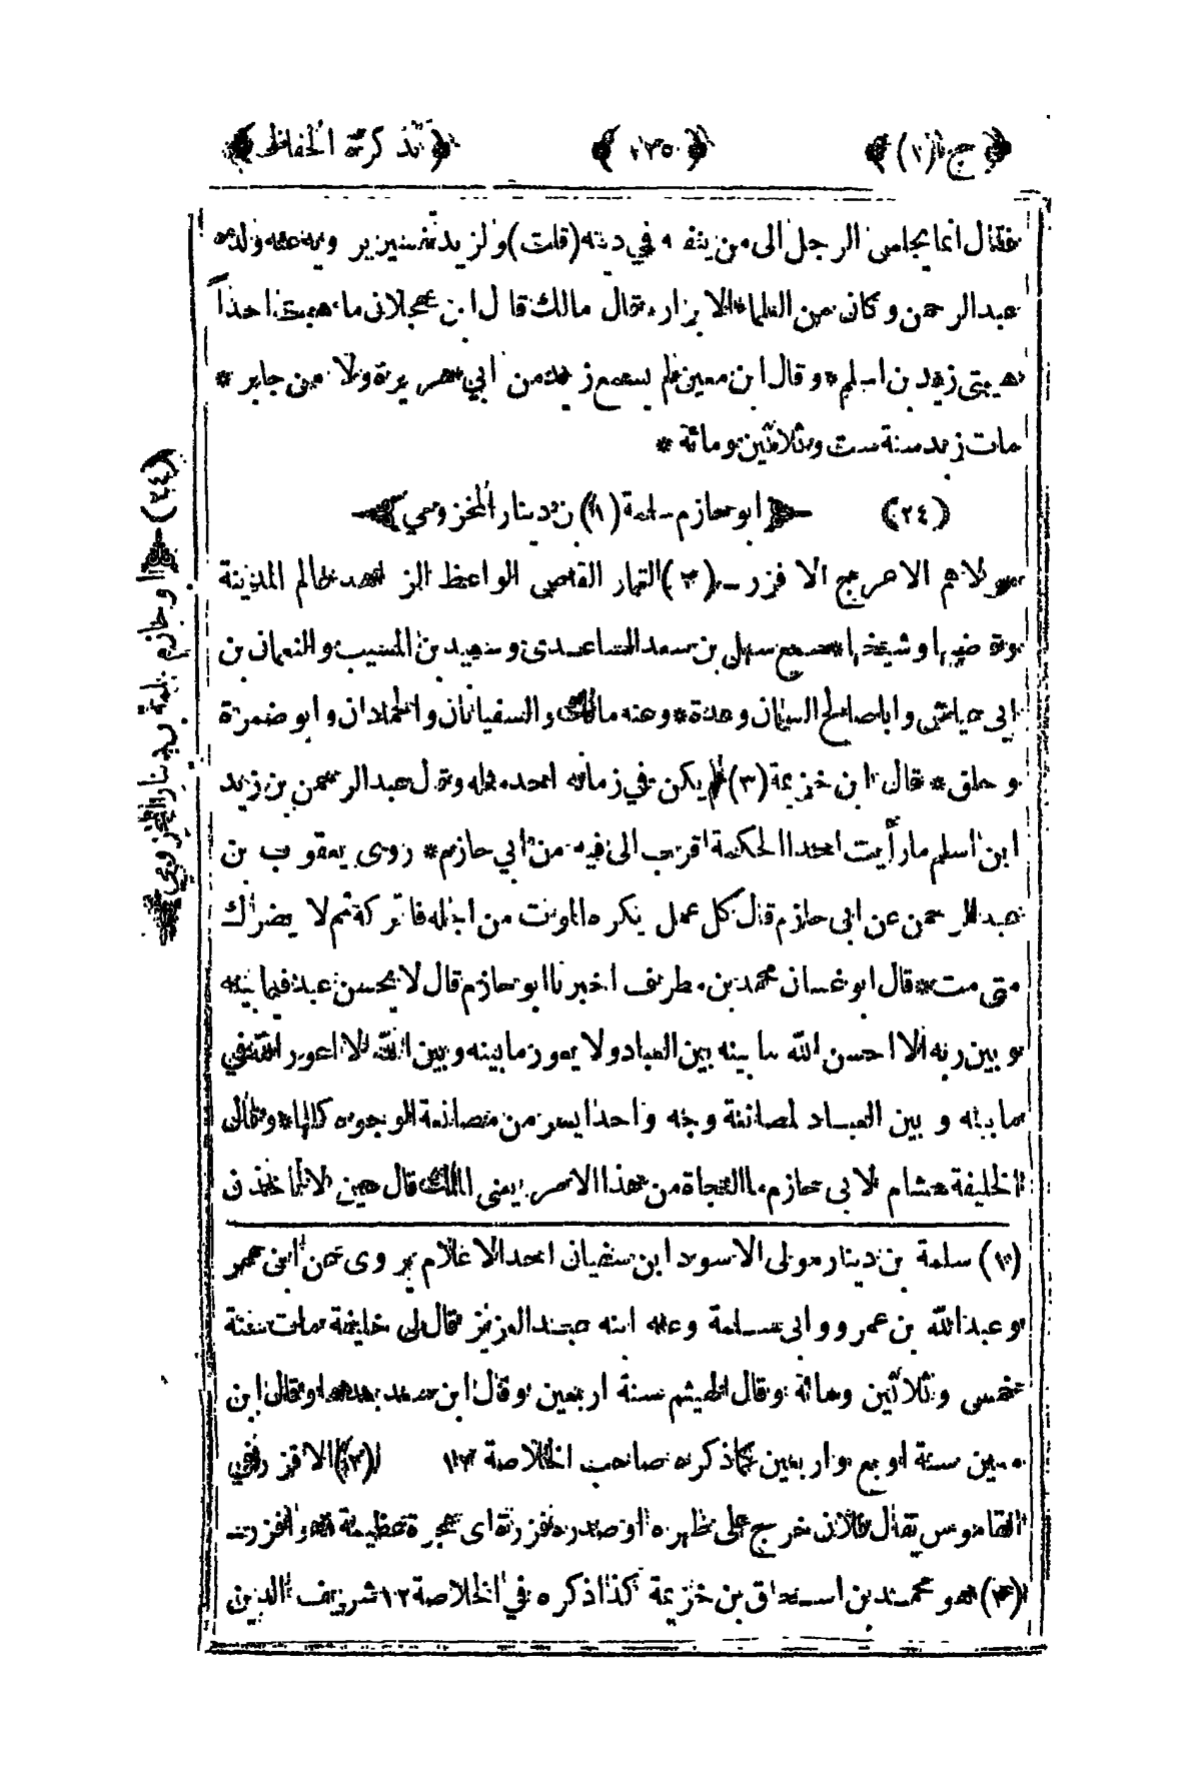 ﴿ج (١)﴾ ﴿١٢٥﴾ ﴿تذكرة الحفاظ﴾
فقال انما يجلس الرجل الى من ينفعه في دينه (قلت) ولزيد تفسير يرويه عنه ولده
عبد الرحمن وكان من العلماء الابرار، قال مالك قال ابن عجلان ما هبت احداً
هيبتي زيد بن اسلم* وقال ابن معين لم يسمع زيد من ابي هريرة ولا من جابر *
مات زيد سنة ست وثلاثين ومائة *
(٢٤) ﴿ابو حازم سلمة (١) بن دينار المخزومي﴾
مولاهم الاعرج الافزر (٢) التمار القاص الواعظ الزاهد عالم المدينة
وقاضيها وشيخها* سمع سهل بن سعد الساعدي وسعيد بن المسيب والنعمان بن
ابي عياش وابا صالح السمان وعدة* وعنه مالك والسفيانان والحمادان وابو ضمرة
وخلق* قال ابن خزيمة (٣) لم يكن في زمانه احد مثله وقال عبد الرحمن بن زيد
ابن اسلم ما رأيت احدا الحكمة اقرب الى فيه من ابي حازم* روى يعقوب بن
عبد الرحمن عن ابي حازم قال كل عمل يكره الموت من اجله فاتركه ثم لا يضرك
متى مت* قال ابو غسان محمد بن مطرف اخبرنا ابو حازم قال لا يحسن عبد فيما بينه
وبين ربه الا احسن الله ما بينه وبين العباد ولا يعور ما بينه وبين الله الا اعور الله في
ما بينه وبين العباد لمصانعة وجه واحد ايسر من مصانعة الوجوه كلها* وقال
الخليفة هشام لابي حازم ما النجاة من هذا الامر يعني الملك قال هين لا تأخذن
(١) سلمة بن دينار مولى الاسود ابن سفيان احد الاعلام يروى عن ابن عمر
وعبد الله بن عمرو وابي سلمة وعنه ابنه عبد العزيز قال خليفة مات سنة
خمس وثلاثين ومائة وقال الهيثم سنة اربعين وقال ابن سعد بعدها وقال ابن
معين سنة اربع واربعين كما ذكره صاحب الخلاصة ١٢ (٢) الافزر في
القاموس يقال فلان خرج على ظهره او صدره فزرة اى عجرة عظيمة فهو افزر
(٣) هو محمد بن اسحاق بن خزيمة كذا ذكره في الخلاصة ١٢ شريف الدين
(٢٤) ﴿ابو حازم سلمة بن دينار المخزومي﴾